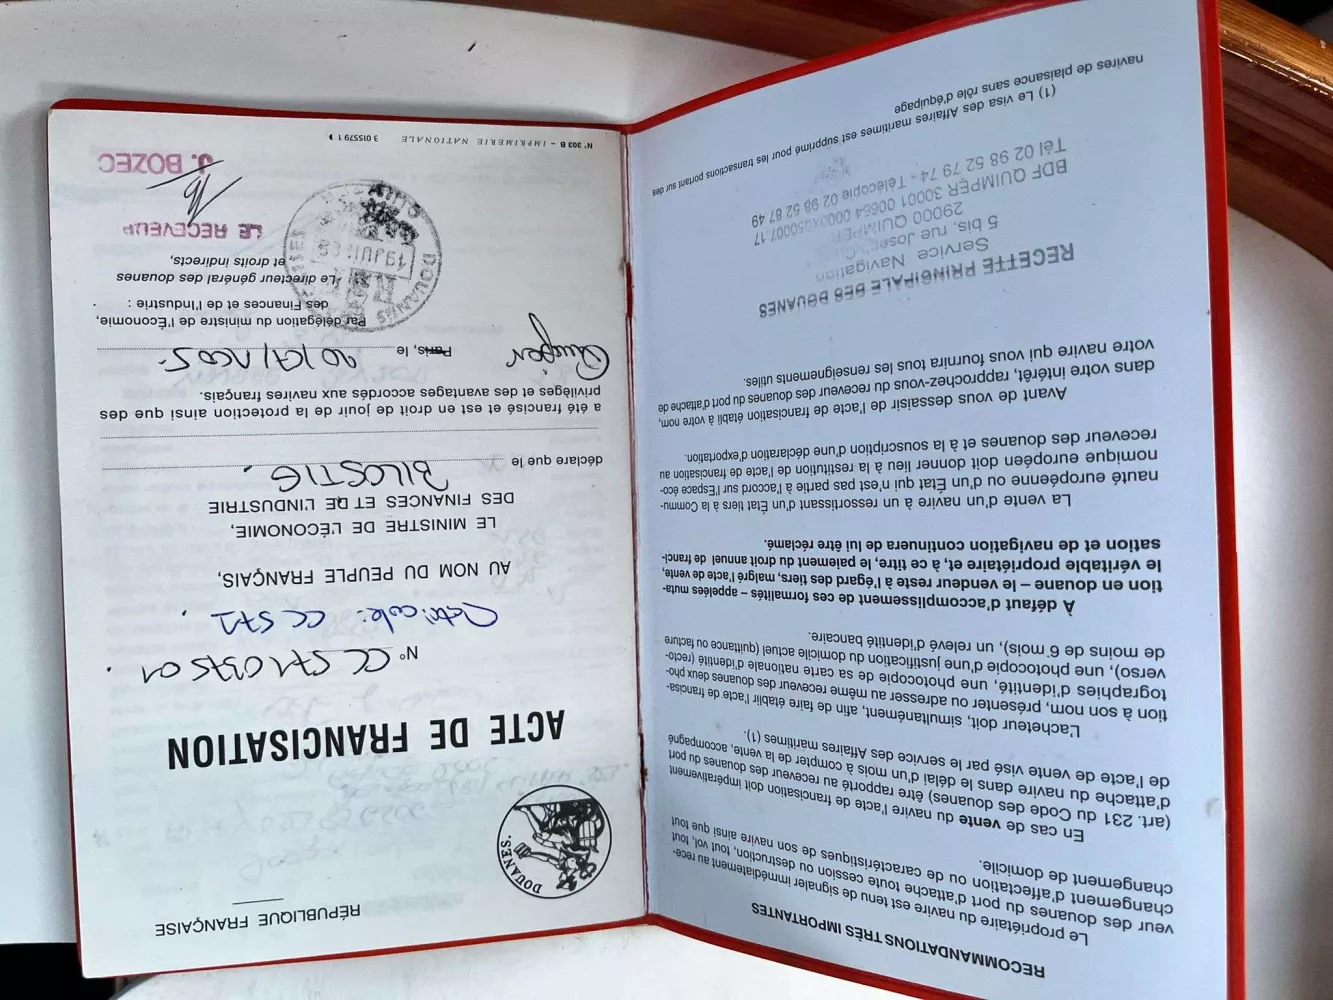 RECOMMANDATIONS TRÈS IMPORTANTES
Le propriétaire du navire est tenu de signaler immédiatement au rece-
veur des douanes du port d'attache toute cession ou destruction, tout vol, tout
changement d'affectation ou de caractéristiques de son navire ainsi que tout
changement de domicile.
En cas de vente du navire l'acte de francisation doit impérativement
(art. 231 du Code des douanes) être rapporté au receveur des douanes du port
d'attache du navire dans le délai d'un mois à compter de la vente, accompagné
de l'acte de vente visé par le service des Affaires maritimes (1).
L'acheteur doit, simultanément, afin de faire établir l'acte de francisa-
tion à son nom, présenter ou adresser au même receveur des douanes deux pho-
tographies d'identité, une photocopie de sa carte nationale d'identité (recto-
verso), une photocopie d'une justification du domicile actuel (quittance ou facture
de moins de 6 mois), un relevé d'identité bancaire.
À défaut d'accomplissement de ces formalités – appelées muta-
tion en douane – le vendeur reste à l'égard des tiers, malgré l'acte de vente,
le véritable propriétaire et, à ce titre, le paiement du droit annuel de franci-
sation et de navigation continuera de lui être réclamé.
La vente d'un navire à un ressortissant d'un État tiers à la Commu-
nauté européenne ou d'un État qui n'est pas partie à l'accord sur l'Espace éco-
nomique européen doit donner lieu à la restitution de l'acte de francisation au
receveur des douanes et à la souscription d'une déclaration d'exportation.
Avant de vous dessaisir de l'acte de francisation établi à votre nom,
dans votre intérêt, rapprochez-vous du receveur des douanes du port d'attache de
votre navire qui vous fournira tous les renseignements utiles.
RECETTE PRINCIPALE DES DOUANES
Service Navigation
5 bis, rue
29000 QUIMPER
BDF QUIMPER 30001 00664 0000X050007 17
Tél 02 98 52 79 74 - Télécopie 02 98 52 87 49
(1) Le visa des Affaires maritimes est supprimé pour les transactions portant sur des
navires de plaisance sans rôle d'équipage
RÉPUBLIQUE FRANÇAISE
DOUANES.
ACTE DE FRANCISATION
N° CC571037501
CC 571
AU NOM DU PEUPLE FRANÇAIS,
LE MINISTRE DE L'ÉCONOMIE,
DES FINANCES ET DE L'INDUSTRIE
déclare que le BILOSTIG
a été francisé et est en droit de jouir de la protection ainsi que des
privilèges et des avantages accordés aux navires français.
Quimper Paris, le
Par délégation du ministre de l'Économie,
des Finances et de l'Industrie :
Le directeur général des douanes
et droits indirects,
LE RECEVEUR
J. BOZEC
DOUANES
19 JUI
N° 303 B – IMPRIMERIE NATIONALE 3 015579 1